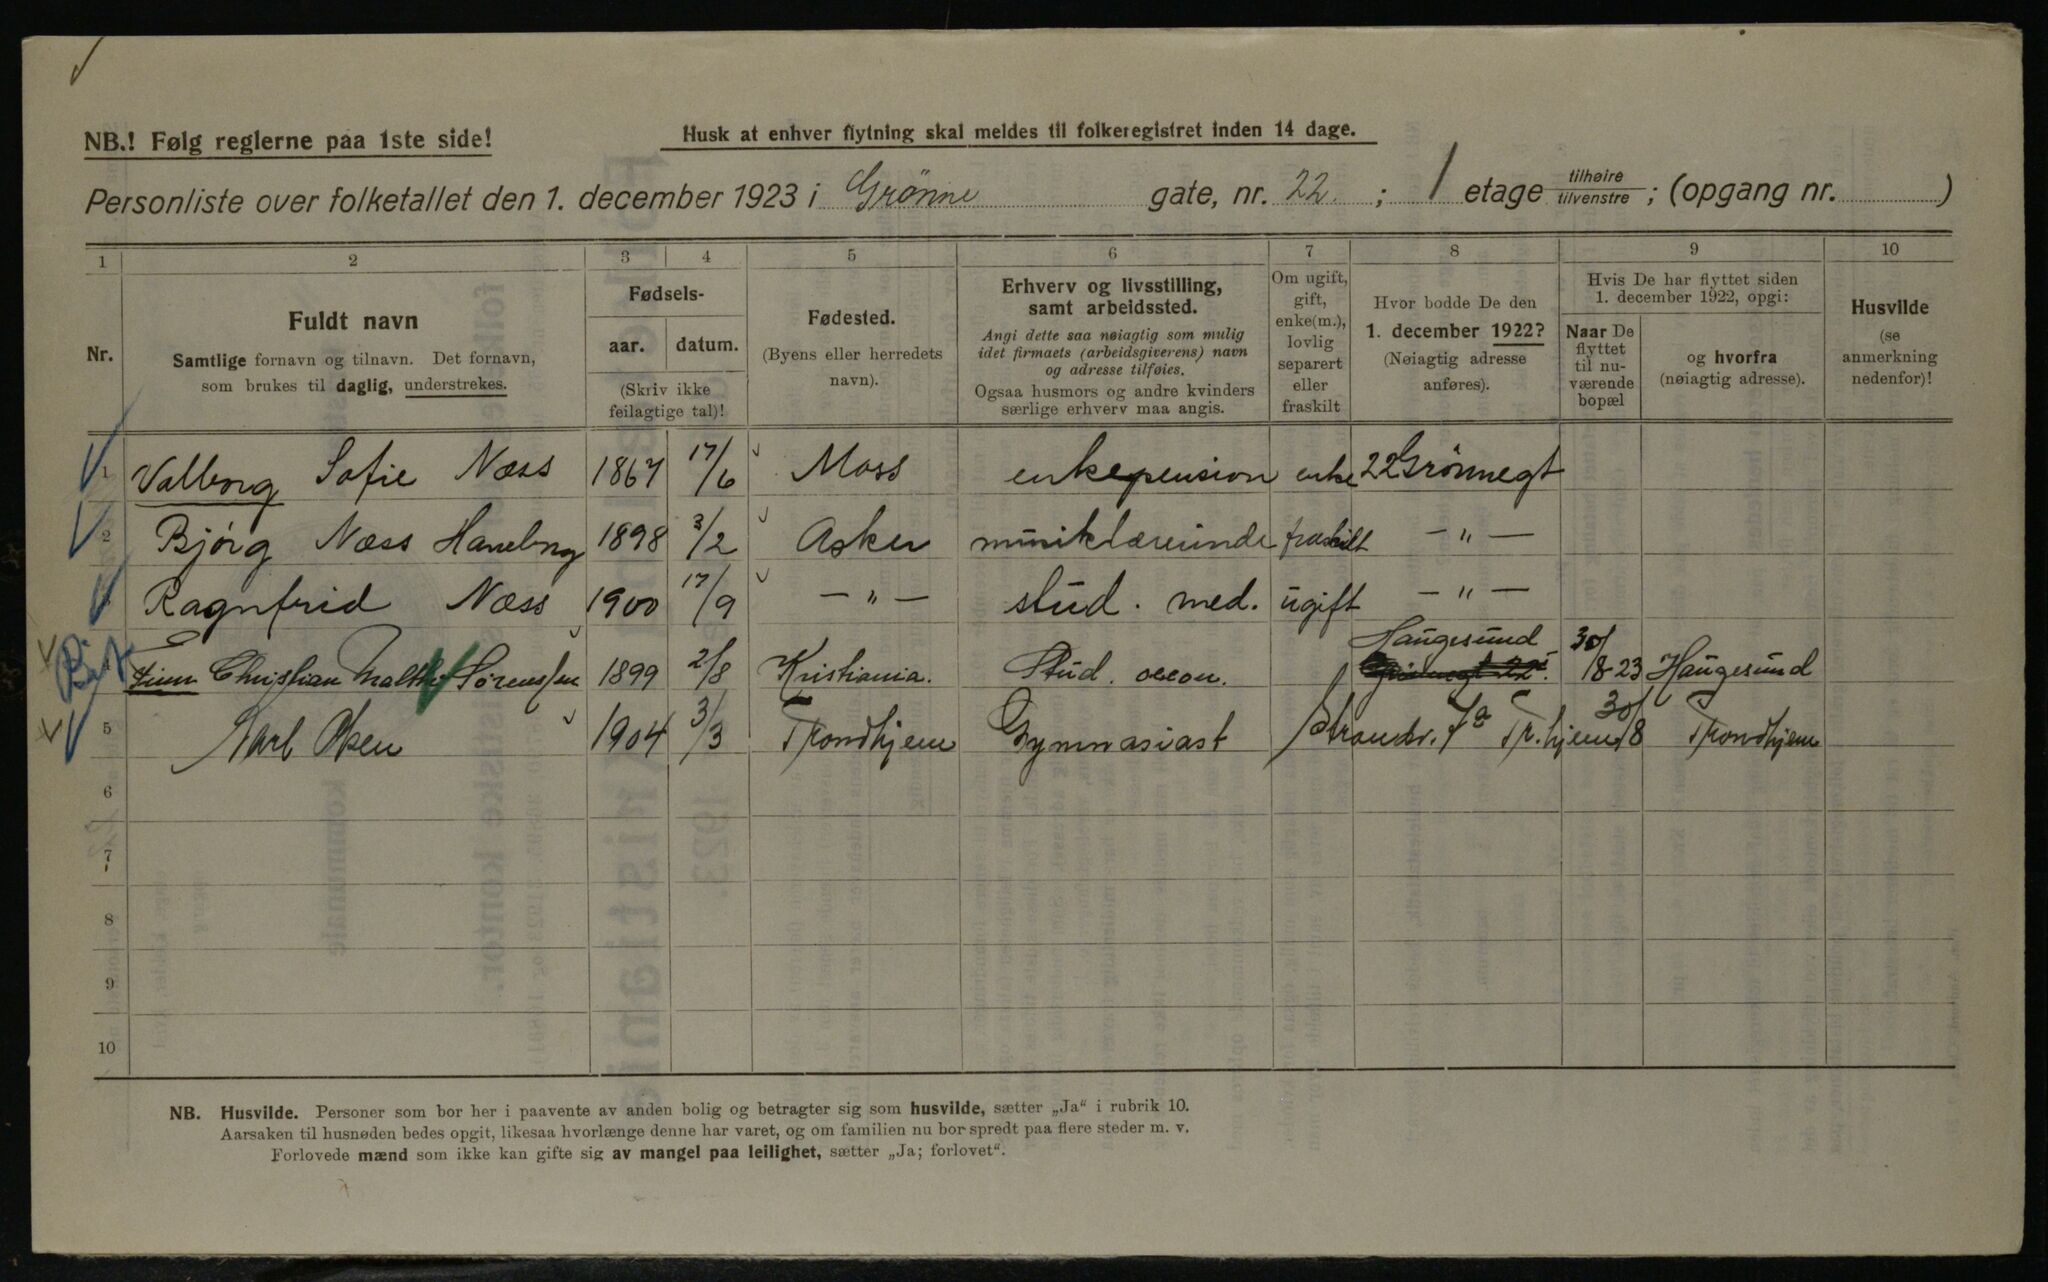 NB.! Følg reglerne paa 1ste side!
Husk at enhver flytning skal meldes til folkeregistret inden 14 dage.
Personliste over folketallet den 1. december 1923 i Grönne gate, nr. 22. ; 1 etage tilhøire tilvenstre ; (opgang nr. )
1 2 3 4 5 6 7 8 9 10
Nr.
Fuldt navn
Samtlige fornavn og tilnavn. Det fornavn,
som brukes til daglig, understrekes.
Fødsels-
aar. datum.
(Skriv ikke
feilagtige tal)!
Fødested.
(Byens eller herredets
navn).
Erhverv og livsstilling,
samt arbeidssted.
Angi dette saa nøiagtig som mulig
idet firmaets (arbeidsgiverens) navn
og adresse tilføies.
Ogsaa husmors og andre kvinders
særlige erhverv maa angis.
Om ugift,
gift,
enke(m.),
lovlig
separert
eller
fraskilt
Hvor bodde De den
1. december 1922?
(Nøiagtig adresse
anføres).
Hvis De har flyttet siden
1. december 1922, opgi:
Naar De
flyttet
til nu-
værende
bopæl
og hvorfra
(nøiagtig adresse).
Husvilde
(se
anmerkning
nedenfor)!
1 Valborg Sofie Næss 1867 17/6 Moss enkepension enke 22 Grönnegt
2 Bjørg Næss Haneborg 1898 3/2 Asker musiklærerinde fraskilt — " —
3 Ragnfrid Næss 1900 17/9 — " — stud. med. ugift — " —
4 Finn Christian Malthe Sørenssen 1899 2/8 Kristiania. Stud. oecon. Haugesund 30/8-23 Haugesund
5 Karl Olsen 1904 3/3 Trondhjem Gymnasiast Strandv. 7a Tr.hjem 30/8 Trondhjem
6
7
8
9
10
NB. Husvilde. Personer som bor her i paavente av anden bolig og betragter sig som husvilde, sætter „Ja“ i rubrik 10.
Aarsaken til husnøden bedes opgit, likesaa hvorlænge denne har varet, og om familien nu bor spredt paa flere steder m. v.
Forlovede mænd som ikke kan gifte sig av mangel paa leilighet, sætter „Ja; forlovet“.